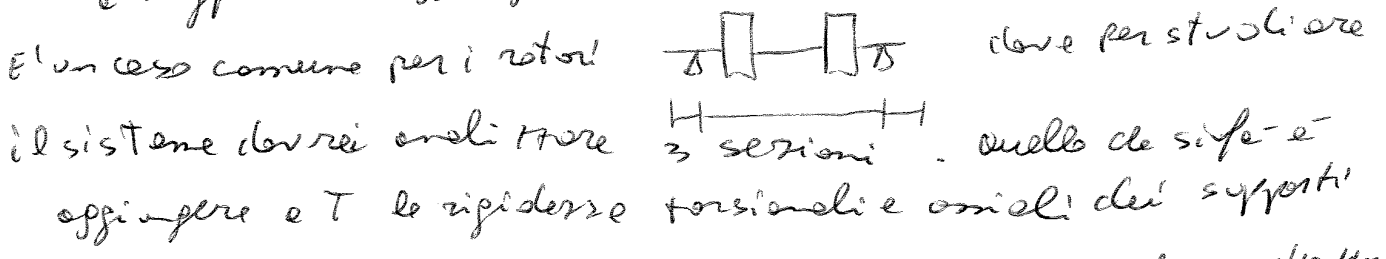 E' un caso comune per i rotori dove per studiare
il sistema dovrei analizzare 3 sezioni. quello che si fa è
aggiungere a T le rigidezze torsionali e assiali dei supporti